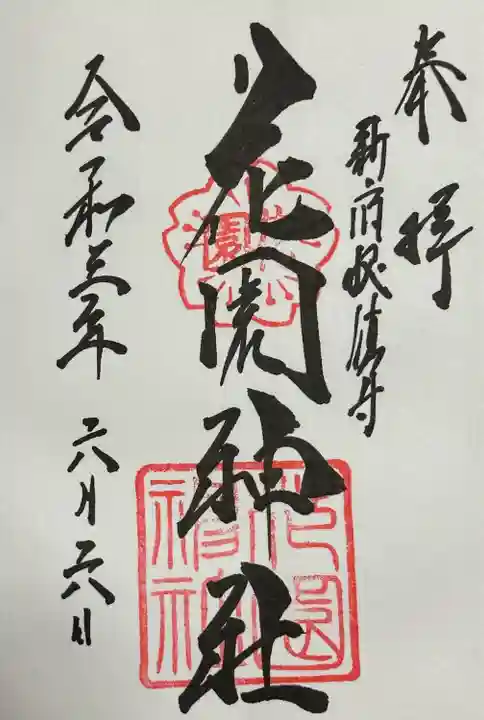 奉拝
新宿総鎮守
花園神社
令和三年 六月六日
花園
花園神社